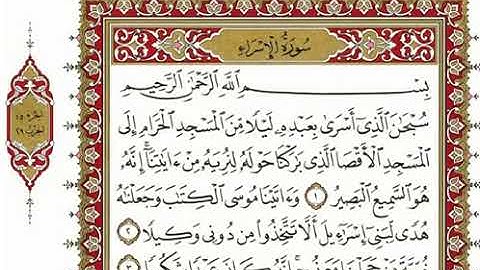 سُورَةُ الإِسْرَاءِ
الجزء ١٥
الحزب ٢٩
بِسْمِ ٱللَّهِ ٱلرَّحْمَٰنِ ٱلرَّحِيمِ
سُبْحَٰنَ ٱلَّذِىٓ أَسْرَىٰ بِعَبْدِهِۦ لَيْلًا مِّنَ ٱلْمَسْجِدِ ٱلْحَرَامِ إِلَى
ٱلْمَسْجِدِ ٱلْأَقْصَا ٱلَّذِى بَٰرَكْنَا حَوْلَهُۥ لِنُرِيَهُۥ مِنْ ءَايَٰتِنَآ ۚ إِنَّهُۥ
هُوَ ٱلسَّمِيعُ ٱلْبَصِيرُ ١ وَءَاتَيْنَا مُوسَى ٱلْكِتَٰبَ وَجَعَلْنَٰهُ
هُدًى لِّبَنِىٓ إِسْرَٰٓءِيلَ أَلَّا تَتَّخِذُوا۟ مِن دُونِى وَكِيلًا ٢